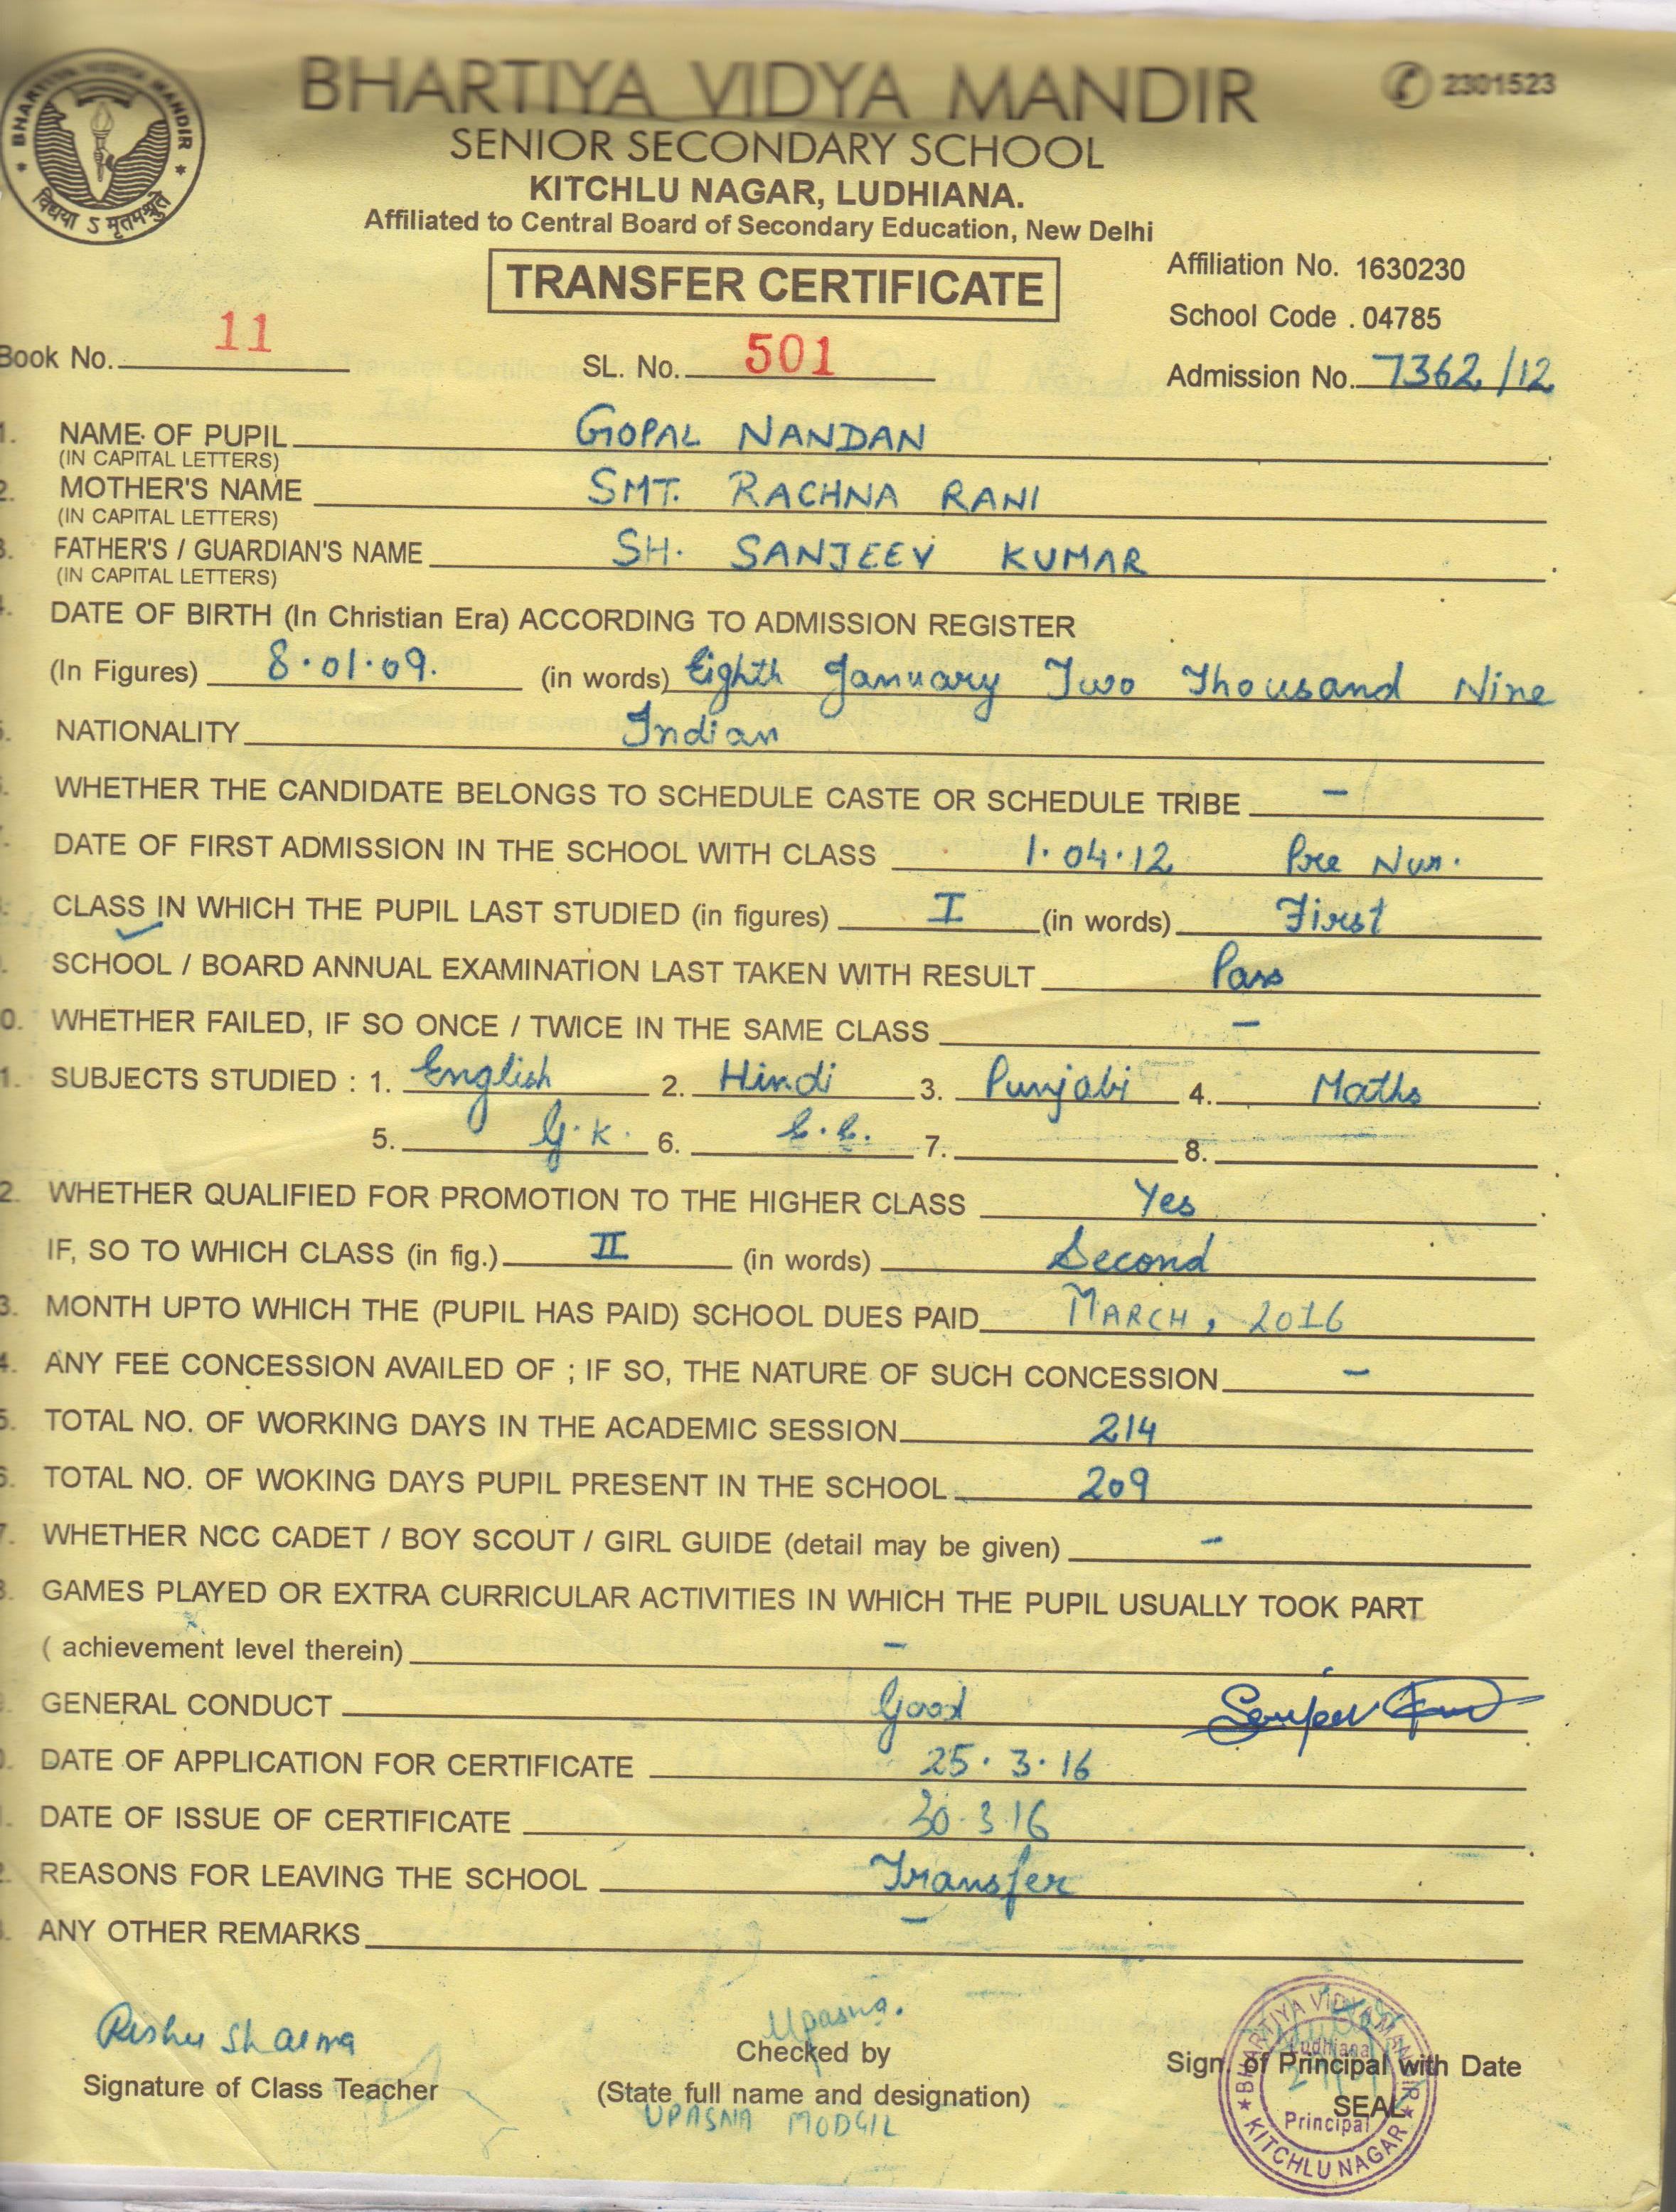 BHARTIYA VIDYA MANDIR
विद्यया ऽ मृतमश्नुते
BHARTIYA VIDYA MANDIR
2301523
SENIOR SECONDARY SCHOOL
KITCHLU NAGAR, LUDHIANA.
Affiliated to Central Board of Secondary Education, New Delhi
TRANSFER CERTIFICATE
Affiliation No. 1630230
School Code . 04785
Book No. 11 SL. No. 501 Admission No. 7362/12
1. NAME OF PUPIL GOPAL NANDAN
(IN CAPITAL LETTERS)
2. MOTHER'S NAME SMT. RACHNA RANI
(IN CAPITAL LETTERS)
3. FATHER'S / GUARDIAN'S NAME SH. SANJEEV KUMAR
(IN CAPITAL LETTERS)
DATE OF BIRTH (In Christian Era) ACCORDING TO ADMISSION REGISTER
(In Figures) 8.01.09. (in words) Eighth January Two Thousand Nine
NATIONALITY Indian
WHETHER THE CANDIDATE BELONGS TO SCHEDULE CASTE OR SCHEDULE TRIBE –
DATE OF FIRST ADMISSION IN THE SCHOOL WITH CLASS 1.04.12 Pre Nur.
CLASS IN WHICH THE PUPIL LAST STUDIED (in figures) I (in words) First
SCHOOL / BOARD ANNUAL EXAMINATION LAST TAKEN WITH RESULT Pass
0. WHETHER FAILED, IF SO ONCE / TWICE IN THE SAME CLASS –
1. SUBJECTS STUDIED : 1. English 2. Hindi 3. Punjabi 4. Maths
5. G.K. 6. 7. 8.
2. WHETHER QUALIFIED FOR PROMOTION TO THE HIGHER CLASS Yes
IF, SO TO WHICH CLASS (in fig.) II (in words) Second
3. MONTH UPTO WHICH THE (PUPIL HAS PAID) SCHOOL DUES PAID MARCH, 2016
4. ANY FEE CONCESSION AVAILED OF ; IF SO, THE NATURE OF SUCH CONCESSION –
5. TOTAL NO. OF WORKING DAYS IN THE ACADEMIC SESSION 214
6. TOTAL NO. OF WOKING DAYS PUPIL PRESENT IN THE SCHOOL 209
7. WHETHER NCC CADET / BOY SCOUT / GIRL GUIDE (detail may be given) –
8. GAMES PLAYED OR EXTRA CURRICULAR ACTIVITIES IN WHICH THE PUPIL USUALLY TOOK PART
( achievement level therein) –
GENERAL CONDUCT Good
DATE OF APPLICATION FOR CERTIFICATE 25.3.16
DATE OF ISSUE OF CERTIFICATE 30.3.16
REASONS FOR LEAVING THE SCHOOL Transfer
ANY OTHER REMARKS –
Sharma Upasna.
Signature of Class Teacher Checked by Sign. of Principal with Date
(State full name and designation) SEAL
UPASNA MODGIL
BHARTIYA VIDYA MANDIR
Ludhiana
Principal
KITCHLU NAGAR